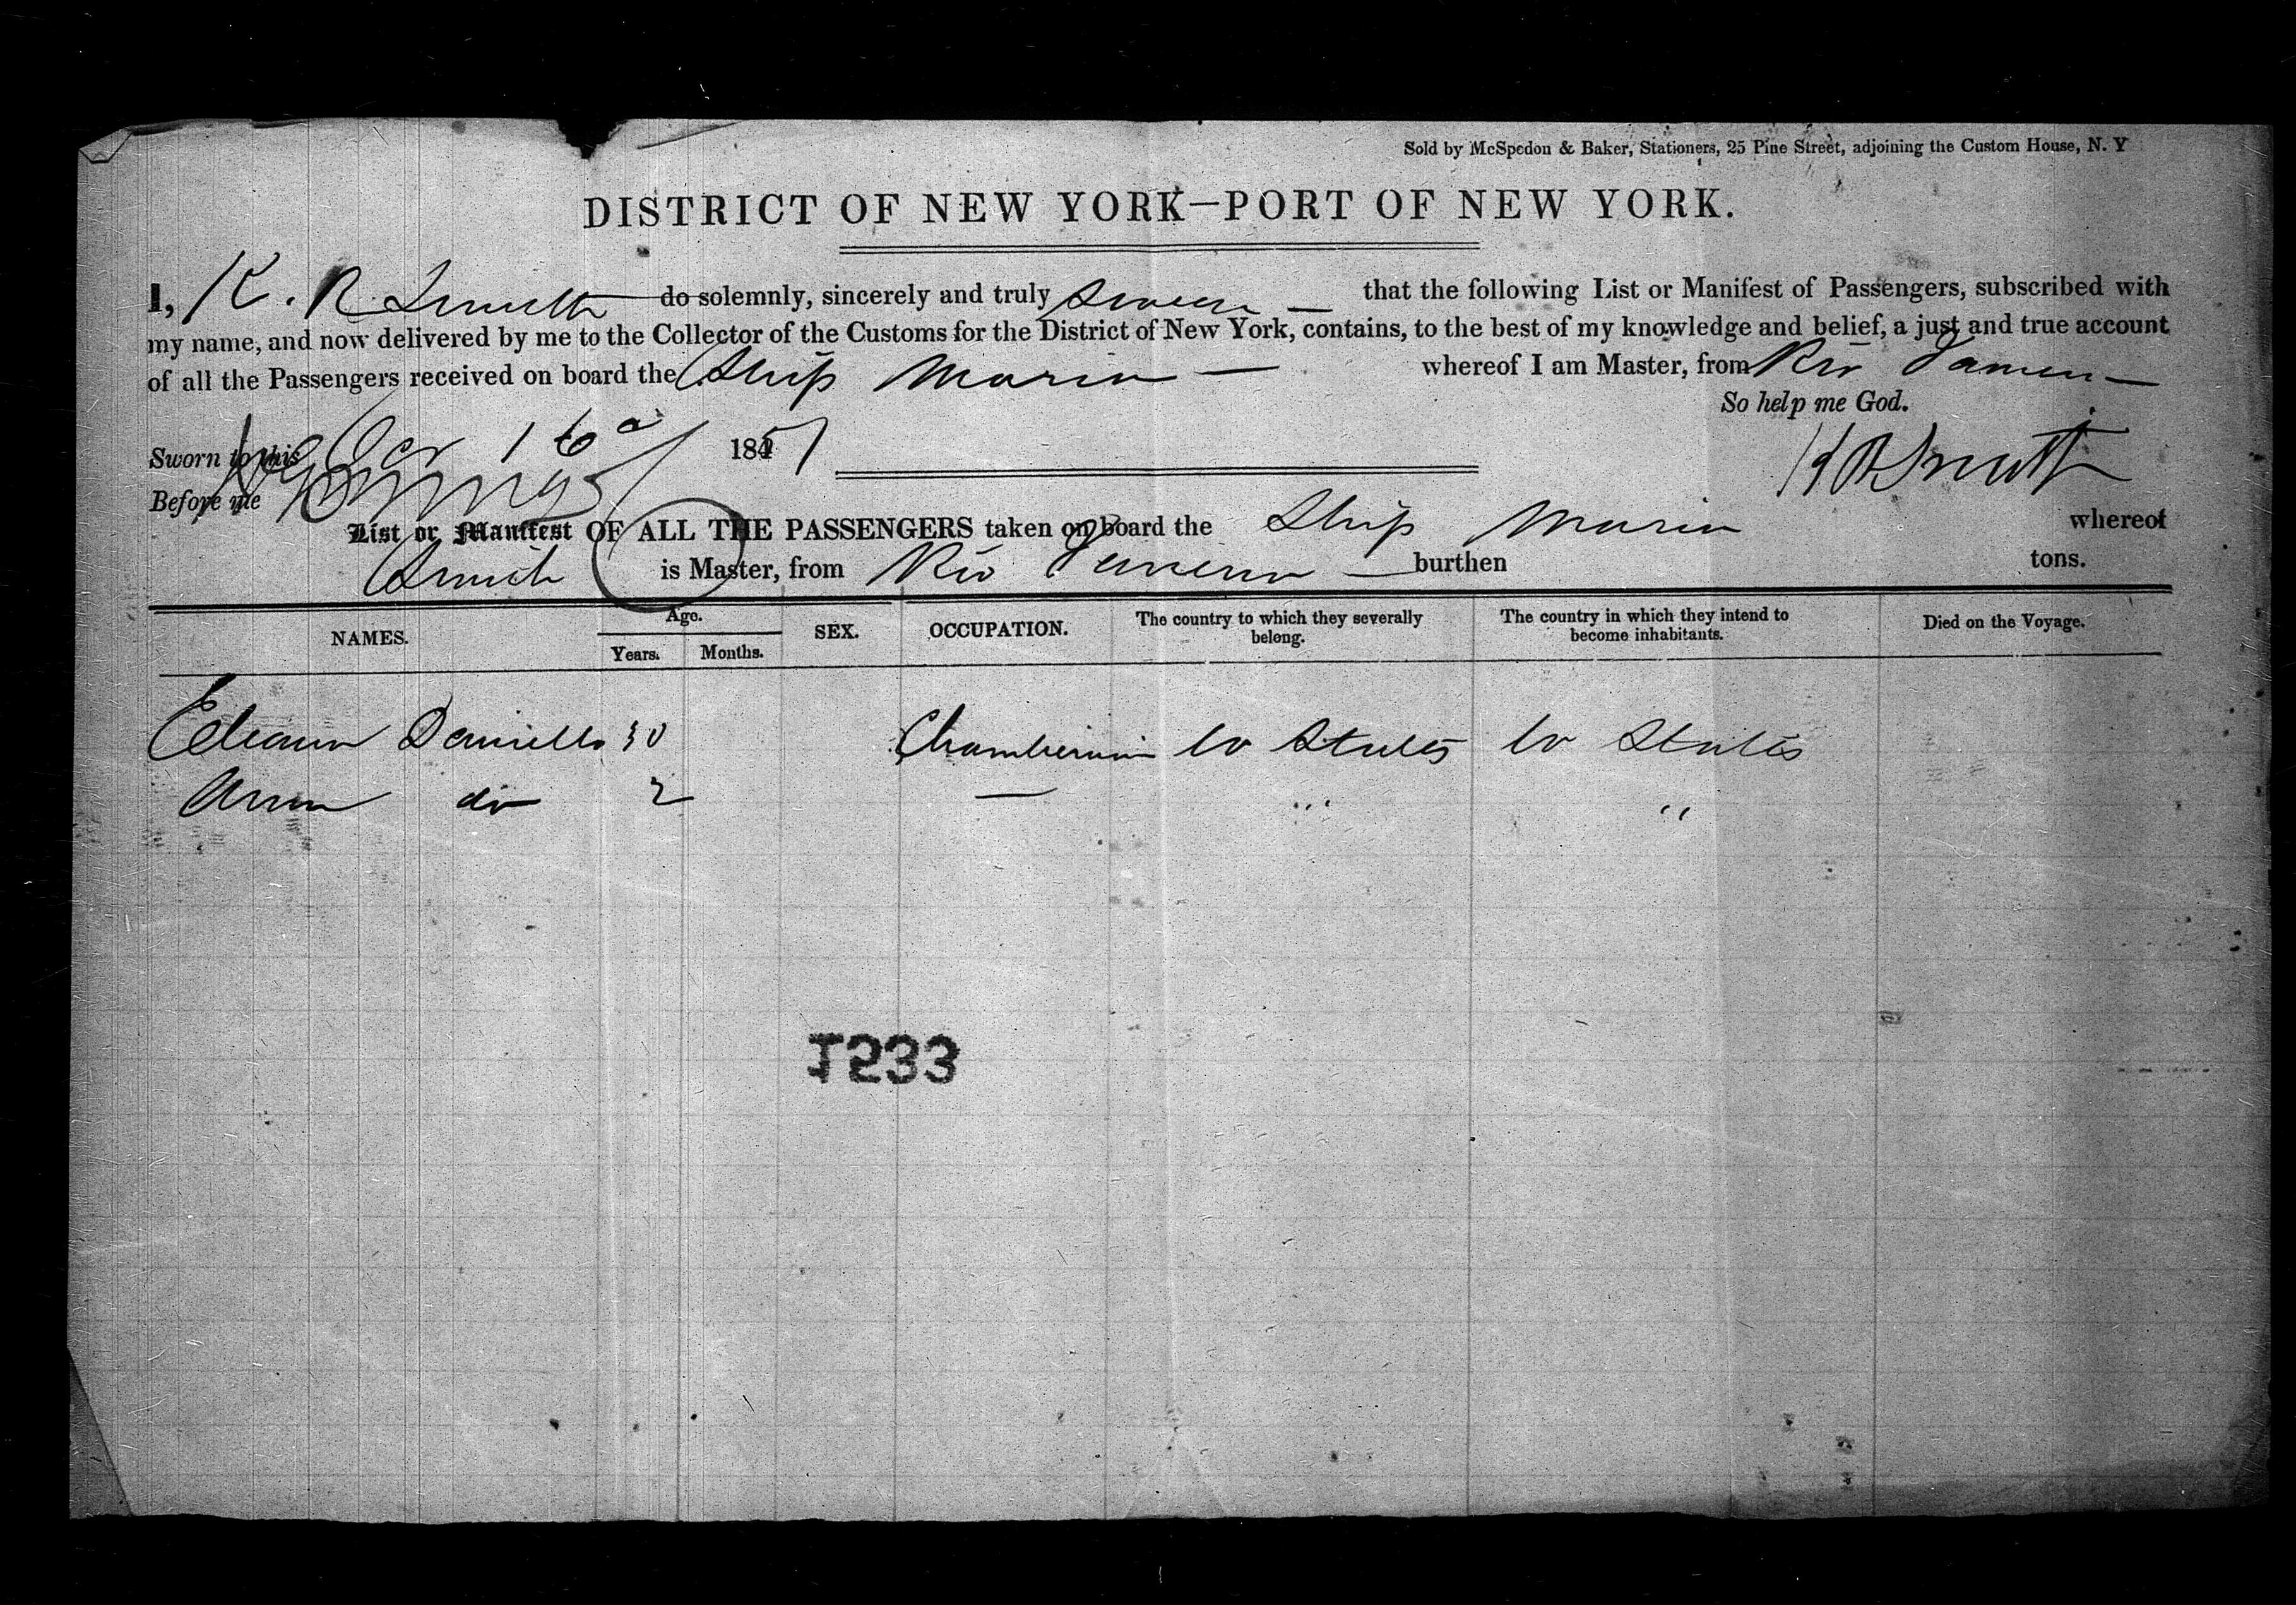 Sold by McSpedon & Baker, Stationers, 25 Pine Street, adjoining the Custom House, N. Y
DISTRICT OF NEW YORK—PORT OF NEW YORK.
I, K. R Smith do solemnly, sincerely and truly swear that the following List or Manifest of Passengers, subscribed with
my name, and now delivered by me to the Collector of the Customs for the District of New York, contains, to the best of my knowledge and belief, a just and true account
of all the Passengers received on board the Ship Maria whereof I am Master, from Rio Janeiro
So help me God.
Sworn to this 16 1851
K R Smith
Before me
List or Manifest OF ALL THE PASSENGERS taken on board the Ship Maria whereof
Smith is Master, from Rio Janeiro burthen tons.
NAMES. Age. Years. Months. SEX. OCCUPATION. The country to which they severally belong. The country in which they intend to become inhabitants. Died on the Voyage.
30 U States U States
Ann do 2 — " "
1533